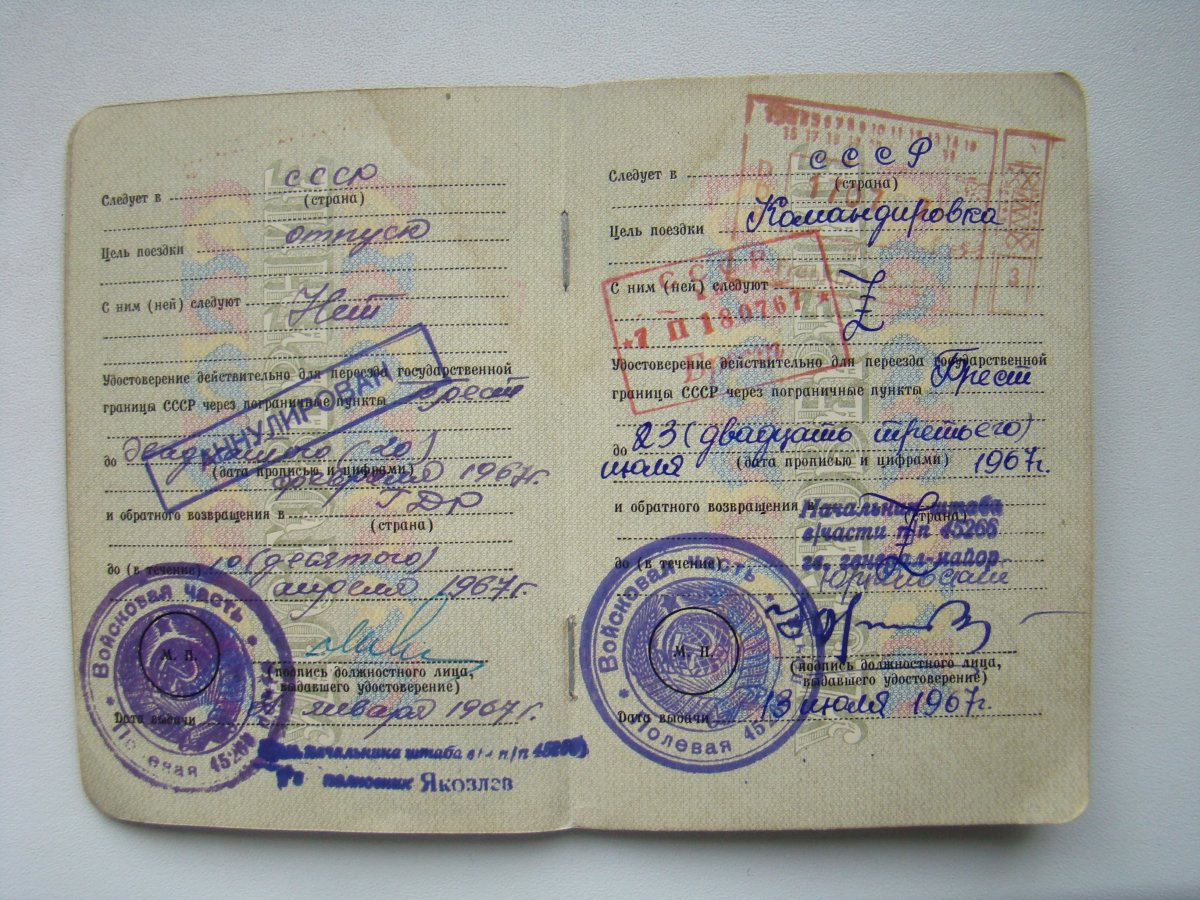 СССР
Следует в
(страна)
отпуск
Цель поездки
С ним (ней) следуют
Нет
Удостоверение действительно для переезда государственной
границы СССР через пограничные пункты Брест
АННУЛИРОВАН
до двадцатого (20)
(дата прописью и цифрами)
февраля 1967г.
ГДР
и обратного возвращения в
(страна)
до (в течение) 10 (десятого)
апреля 1967г.
Войсковая часть
Полевая 45266
М. П.
(подпись должностного лица,
выдавшего удостоверение)
Дата выдачи января 1967г.
начальника штаба в/ч п/п 45266
Яковлев
СССР
Следует в
(страна)
Командировка
Цель поездки
С ним (ней) следуют Z
СССР
1 П 180767
Брест
Удостоверение действительно для переезда государственной
границы СССР через пограничные пункты Брест
до 23 (двадцать третьего)
июля (дата прописью и цифрами) 1967г.
и обратного возвращения в Z
(страна)
Начальник штаба
в/части п/п 45266
гв. генерал-майор
до (в течение)
Войсковая часть
Полевая 45
М. П.
(подпись должностного лица,
выдавшего удостоверение)
Дата выдачи 13 июля 1967г.